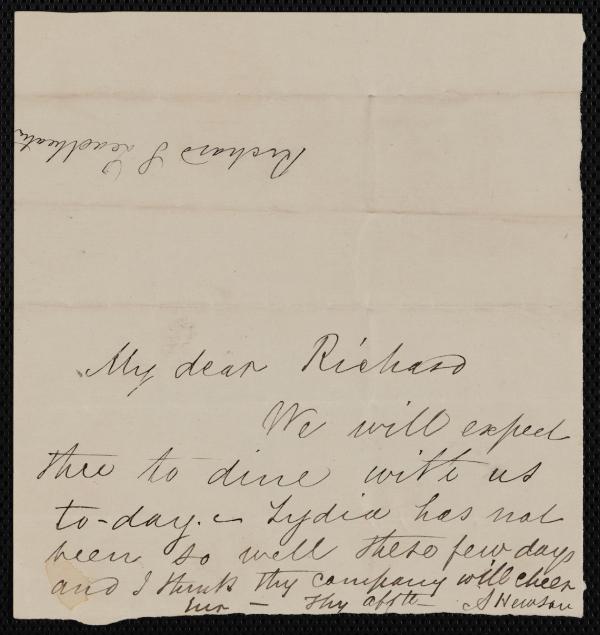 Richard S Leadbeater
My dear Richard
We will expect
thee to dine with us
to-day. - Lydia has not
been so well these few days
and I think thy company will cheer
her - thy affte - A Newsom